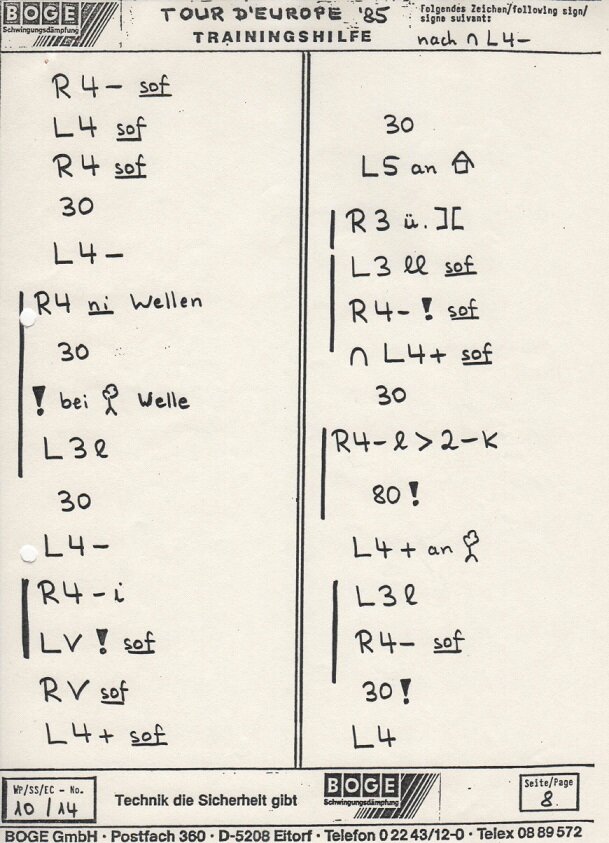 BOGE
Schwingungsdämpfung
TOUR D'EUROPE '85
TRAININGSHILFE
Folgendes Zeichen/following sign/
signe suivant:
nach ∩ L4–
R4– sof
L4 sof
R4 sof
30
L4–
R4 ni Wellen
30
! bei Welle
L3l
30
L4–
R4–i
LV ! sof
RV sof
L4+ sof
30
L5 an
R3 ü. ][
L3 ll sof
R4–! sof
∩ L4+ sof
30
R4–l>2–K
80!
L4+ an
L3l
R4– sof
30!
L4
WP/SS/EC - No.
10/14
Technik die Sicherheit gibt
BOGE
Schwingungsdämpfung
Seite/Page
8
BOGE GmbH · Postfach 360 · D-5208 Eitorf · Telefon 0 22 43/12-0 · Telex 08 89 572